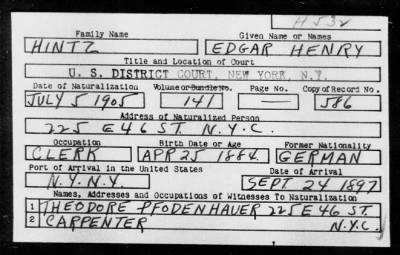 H532
Family Name Given Name or Names
HINTZ EDGAR HENRY
Title and Location of Court
U. S. DISTRICT COURT, NEW YORK, N.Y.
Date of Naturalization Volume or Bundle No. Page No. Copy of Record No.
JULY 5 1905 141 — 586
Address of Naturalized Person
225 E 46 ST. N.Y.C.
Occupation Birth Date or Age Former Nationality
CLERK APR 25 1884 GERMAN
Port of Arrival in the United States Date of Arrival
N.Y. N.Y. SEPT 24 1897
Names, Addresses and Occupations of Witnesses To Naturalization
1 THEODORE PFODENHAUER 225 E 46 ST.
2 CARPENTER N.Y.C.